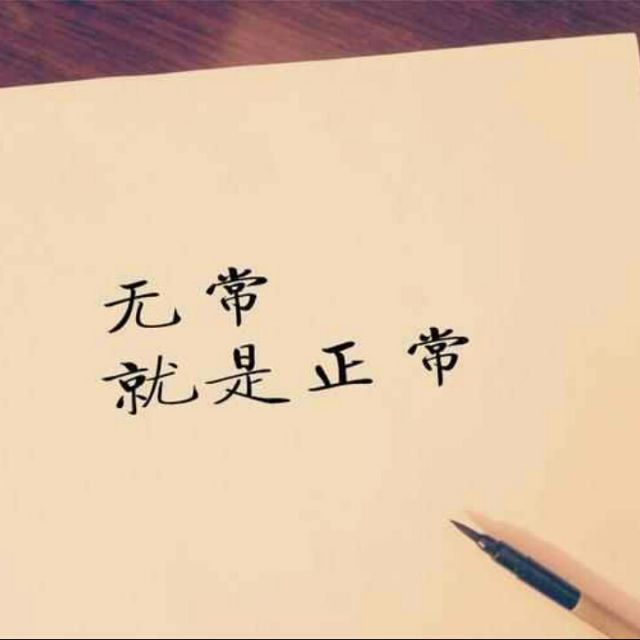 无常
就是正常